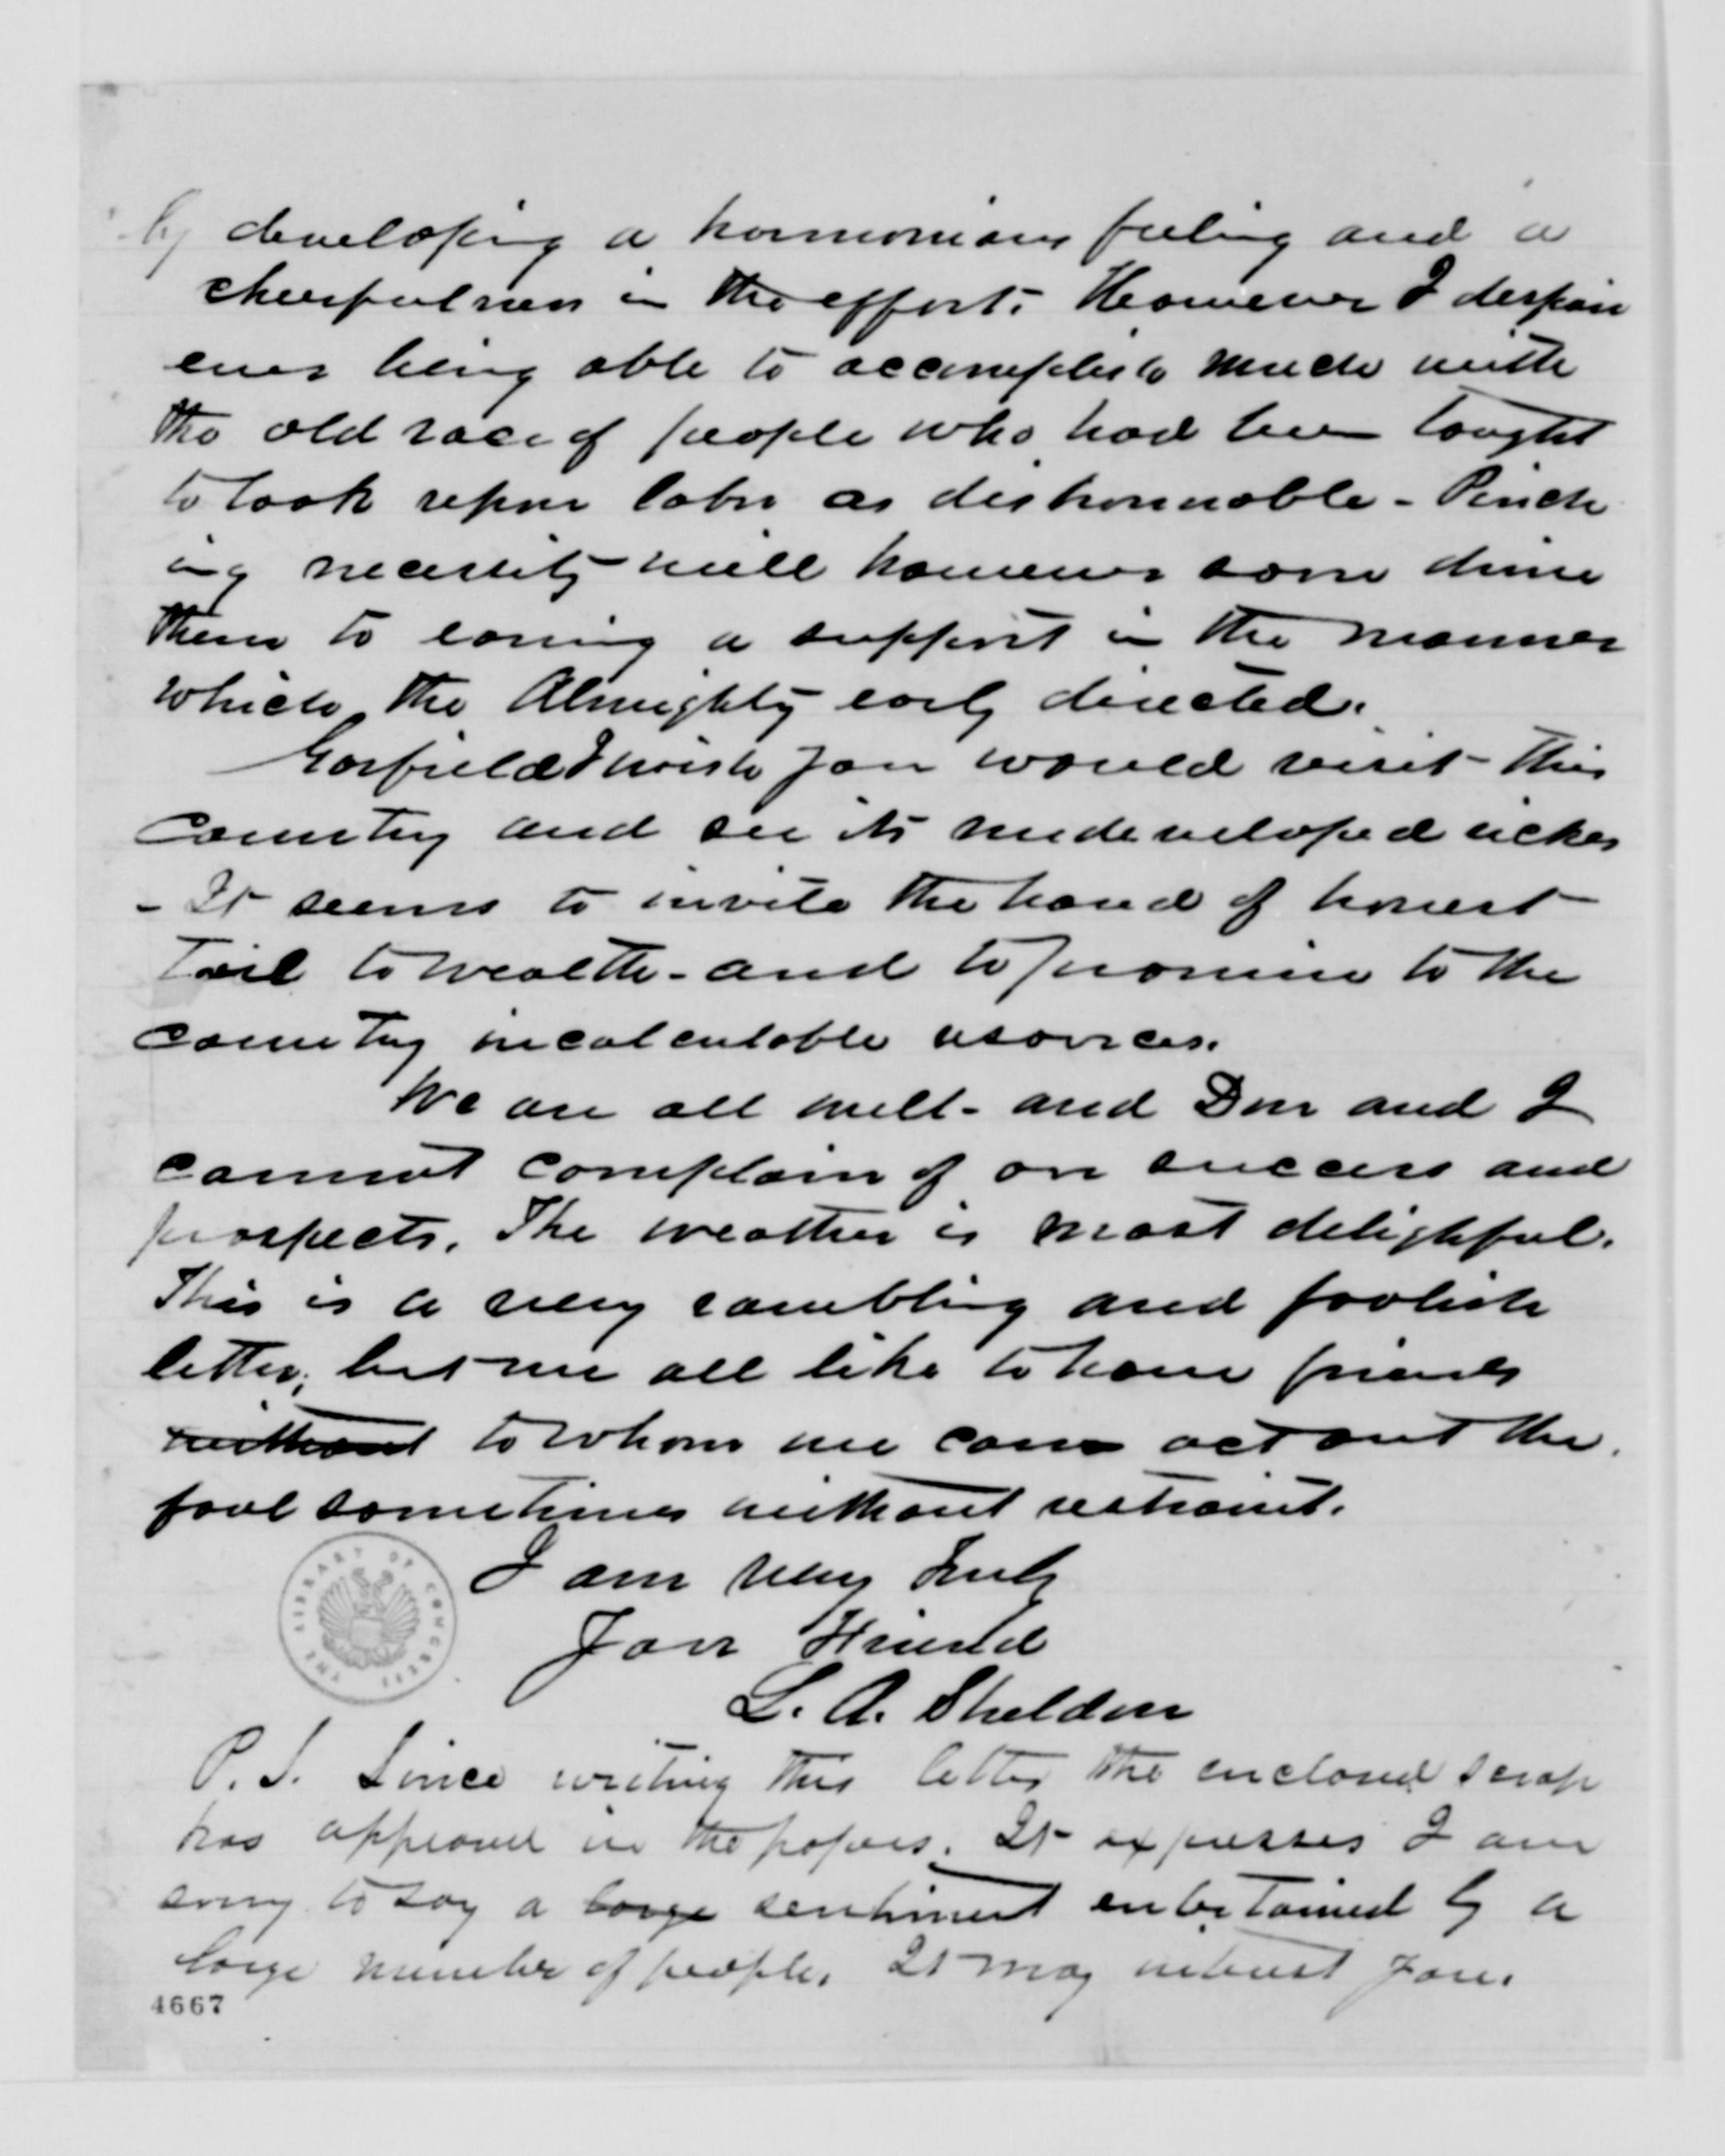 by developing a harmonious feeling and a
cheerfulness in the effort. However I despair
ever being able to accomplish much with
the old race of people who had been taught
to look upon labor as dishonorable - Pinch
ing necessity will however soon drive
them to earning a support in the manner
which the Almighty early directed.
Garfield I wish you would visit this
Country and see its undeveloped riches
- It seems to invite the hand of honest
toil to wealth - and to promise to the
country incalculable resources.
We are all well - and Don and I
cannot complain of our success and
prospects. The weather is most delightful.
This is a very rambling and foolish
letter; but we all like to have friends
without to whom we can act out the
fool sometimes without restraint.
I am very truly
Your Friend
L. A. Sheldon
THE LIBRARY OF CONGRESS
P. S. Since writing this letter the enclosed scrap
has appeared in the papers. It expresses I am
sorry to say a large sentiment entertained by a
large number of people. It may interest you.
4667